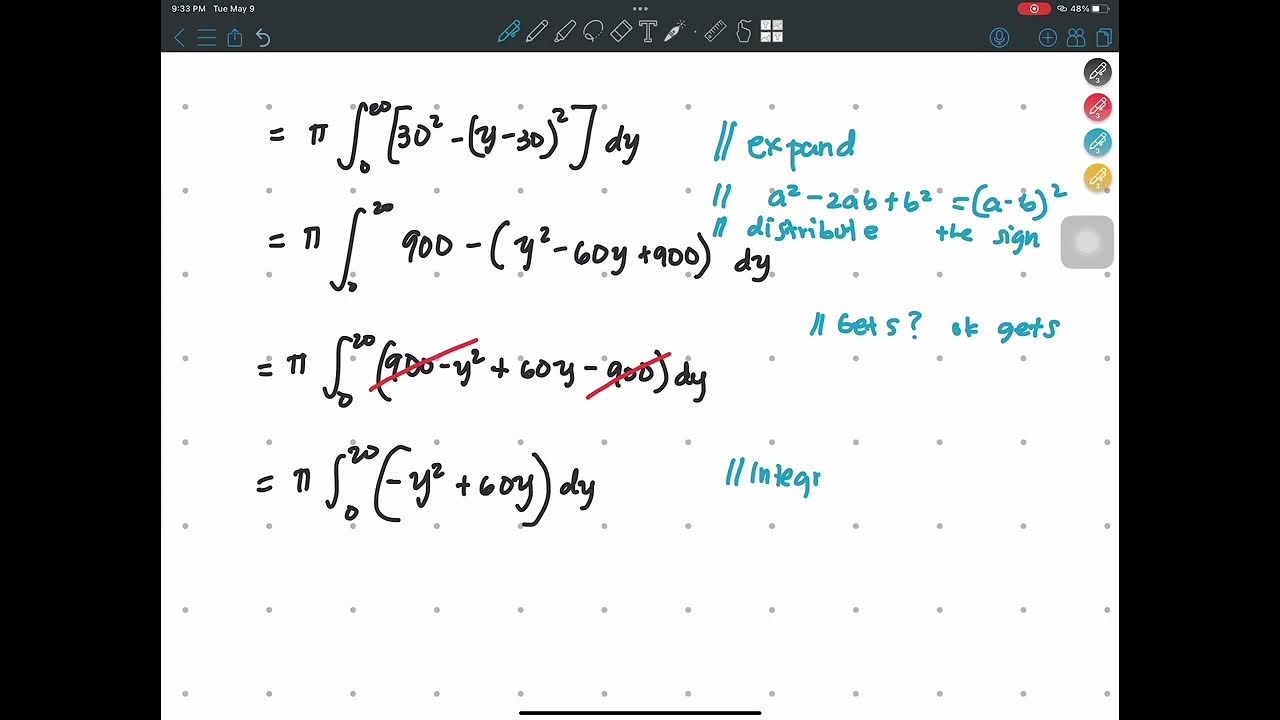 9:33 PM Tue May 9
48%
= π ∫₀²⁰ [30² - (y - 30)²] dy // expand
// a² - 2ab + b² = (a - b)²
// distribute the sign
= π ∫₀²⁰ 900 - (y² - 60y + 900) dy
// Gets? ok gets
= π ∫₀²⁰ (900 - y² + 60y - 900) dy
= π ∫₀²⁰ (-y² + 60y) dy // Integr